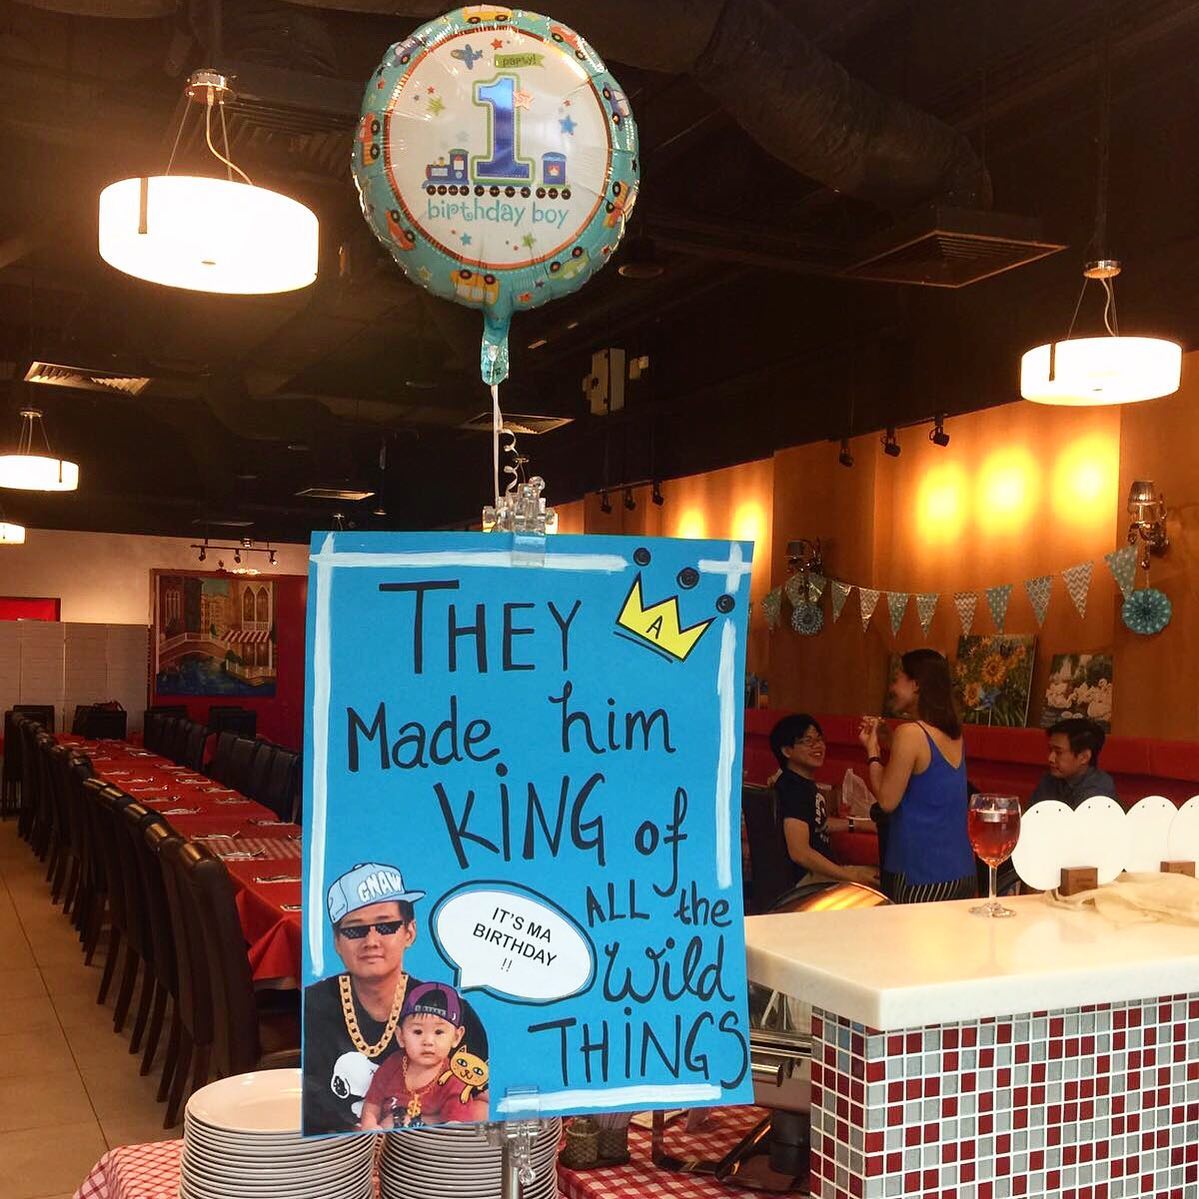 party!
1st
birthday boy
A
THEY
Made him
KING of
ALL the
Wild
THINGS
GNAW
IT'S MA
BIRTHDAY
!!